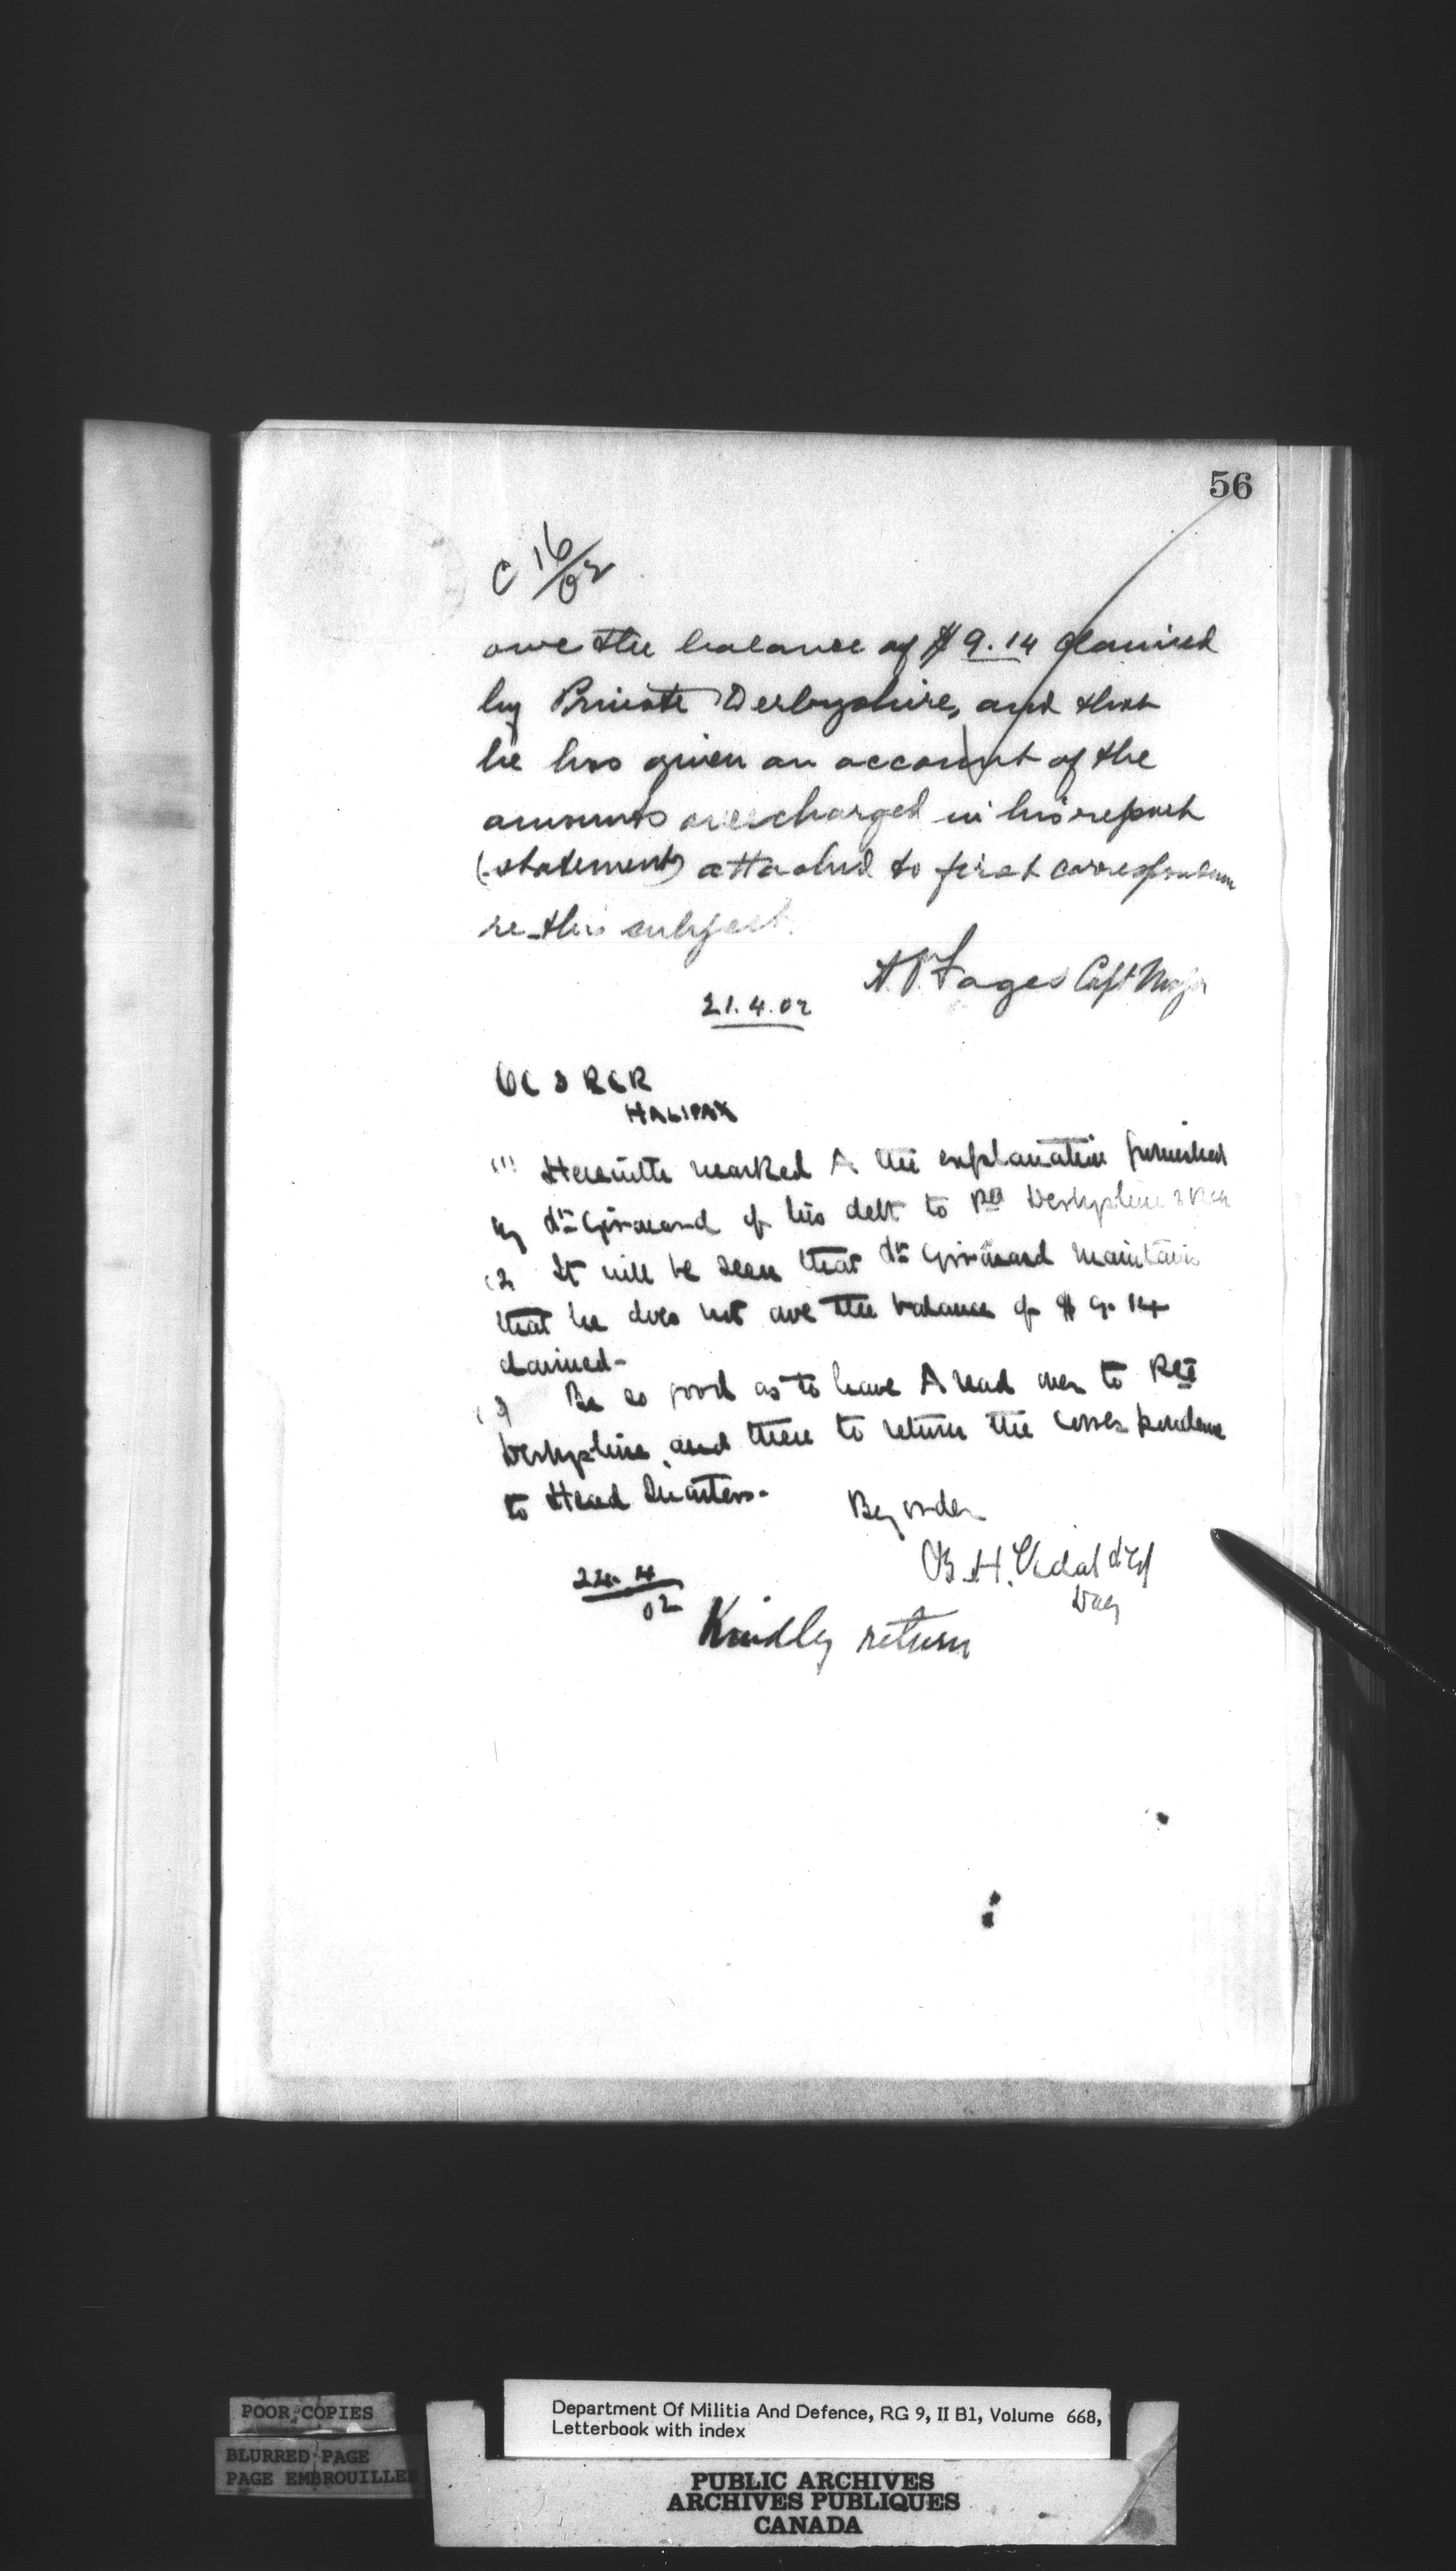 56
C 16/02
owe the balance of $ 9.14 claimed
by Private Derbyshire, and that
he has given an account of the
amounts overcharged in his report
(statement) attached to first
re-this subject.
Capt Major
21.4.02
OC 3 RCR
HALIFAX
(1) Herewith marked A the explanation furnished
by of his debt to Pte Derbyshire 3 RCR
(2 It will be seen that maintains
that he does not owe the balance of $ 9.14
claimed-
(3) Be so good as to have A read over to Pte
Derbyshire, and then to return the correspondence
to Head Quarters-
By order
B.H. Vidal
24.4
02
Kindly return
POOR COPIES
BLURRED PAGE
PAGE EMBROUILLEE
Department Of Militia And Defence, RG 9, II B1, Volume 668,
Letterbook with index
PUBLIC ARCHIVES
ARCHIVES PUBLIQUES
CANADA